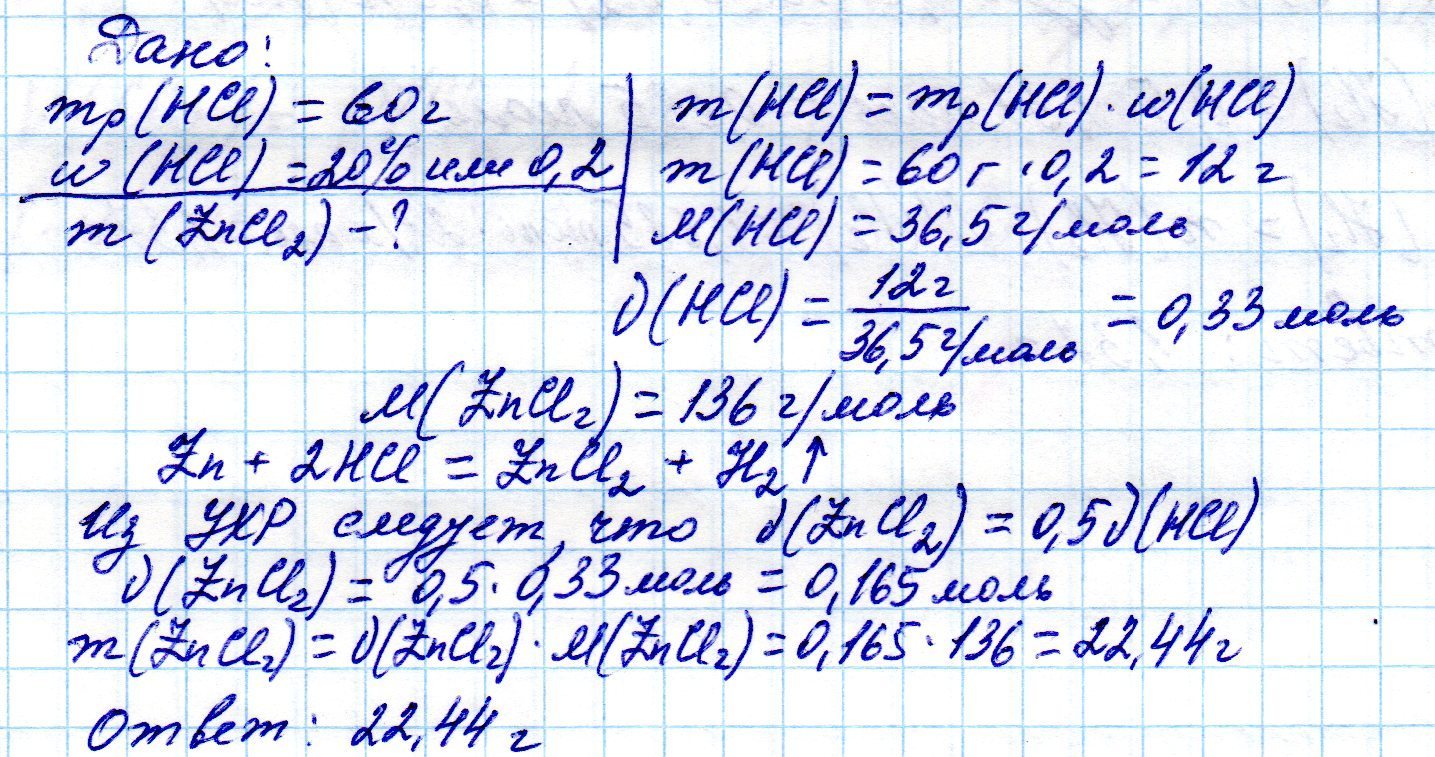 Дано:
mр(HCl) = 60г
w(HCl) = 20% или 0,2
m(ZnCl₂) - ?
m(HCl) = mр(HCl) · w(HCl)
m(HCl) = 60г · 0,2 = 12 г
M(HCl) = 36,5 г/моль
ν(HCl) = 12г / 36,5 г/моль = 0,33 моль
M(ZnCl₂) = 136 г/моль
Zn + 2HCl = ZnCl₂ + H₂↑
Из УХР следует, что ν(ZnCl₂) = 0,5ν(HCl)
ν(ZnCl₂) = 0,5 · 0,33 моль = 0,165 моль
m(ZnCl₂) = ν(ZnCl₂) · M(ZnCl₂) = 0,165 · 136 = 22,44 г
Ответ: 22,44 г